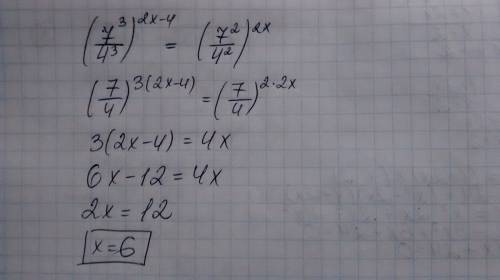 (7³/4³)^(2x-4) = (7²/4²)^(2x)
(7/4)^(3(2x-4)) = (7/4)^(2·2x)
3(2x-4) = 4x
6x-12 = 4x
2x = 12
x=6